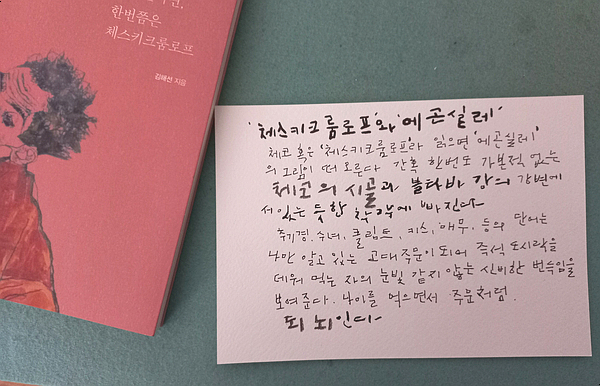 한번쯤은
체스키크룸로프
김해선 지음
'체스키크룸로프와 '에곤실레'
체코 혹은 '체스키크룸로프'라 읽으면 '에곤실레'
의 그림이 떠오른다 간혹 한번도 가본적 없는
체코의 시골과 블타바 강의 강변에
서있는 듯한 착각에 빠진다
수녀, 클림트, 키스, 애무, 등의 단어는
나만 알고 있는 고대주문이 되어 즉석 도시락을
데워 먹는 자의 눈빛 같지 않는 신비한 번득임을
보여준다. 나이를 먹으면서 주문처럼.
되뇌인다